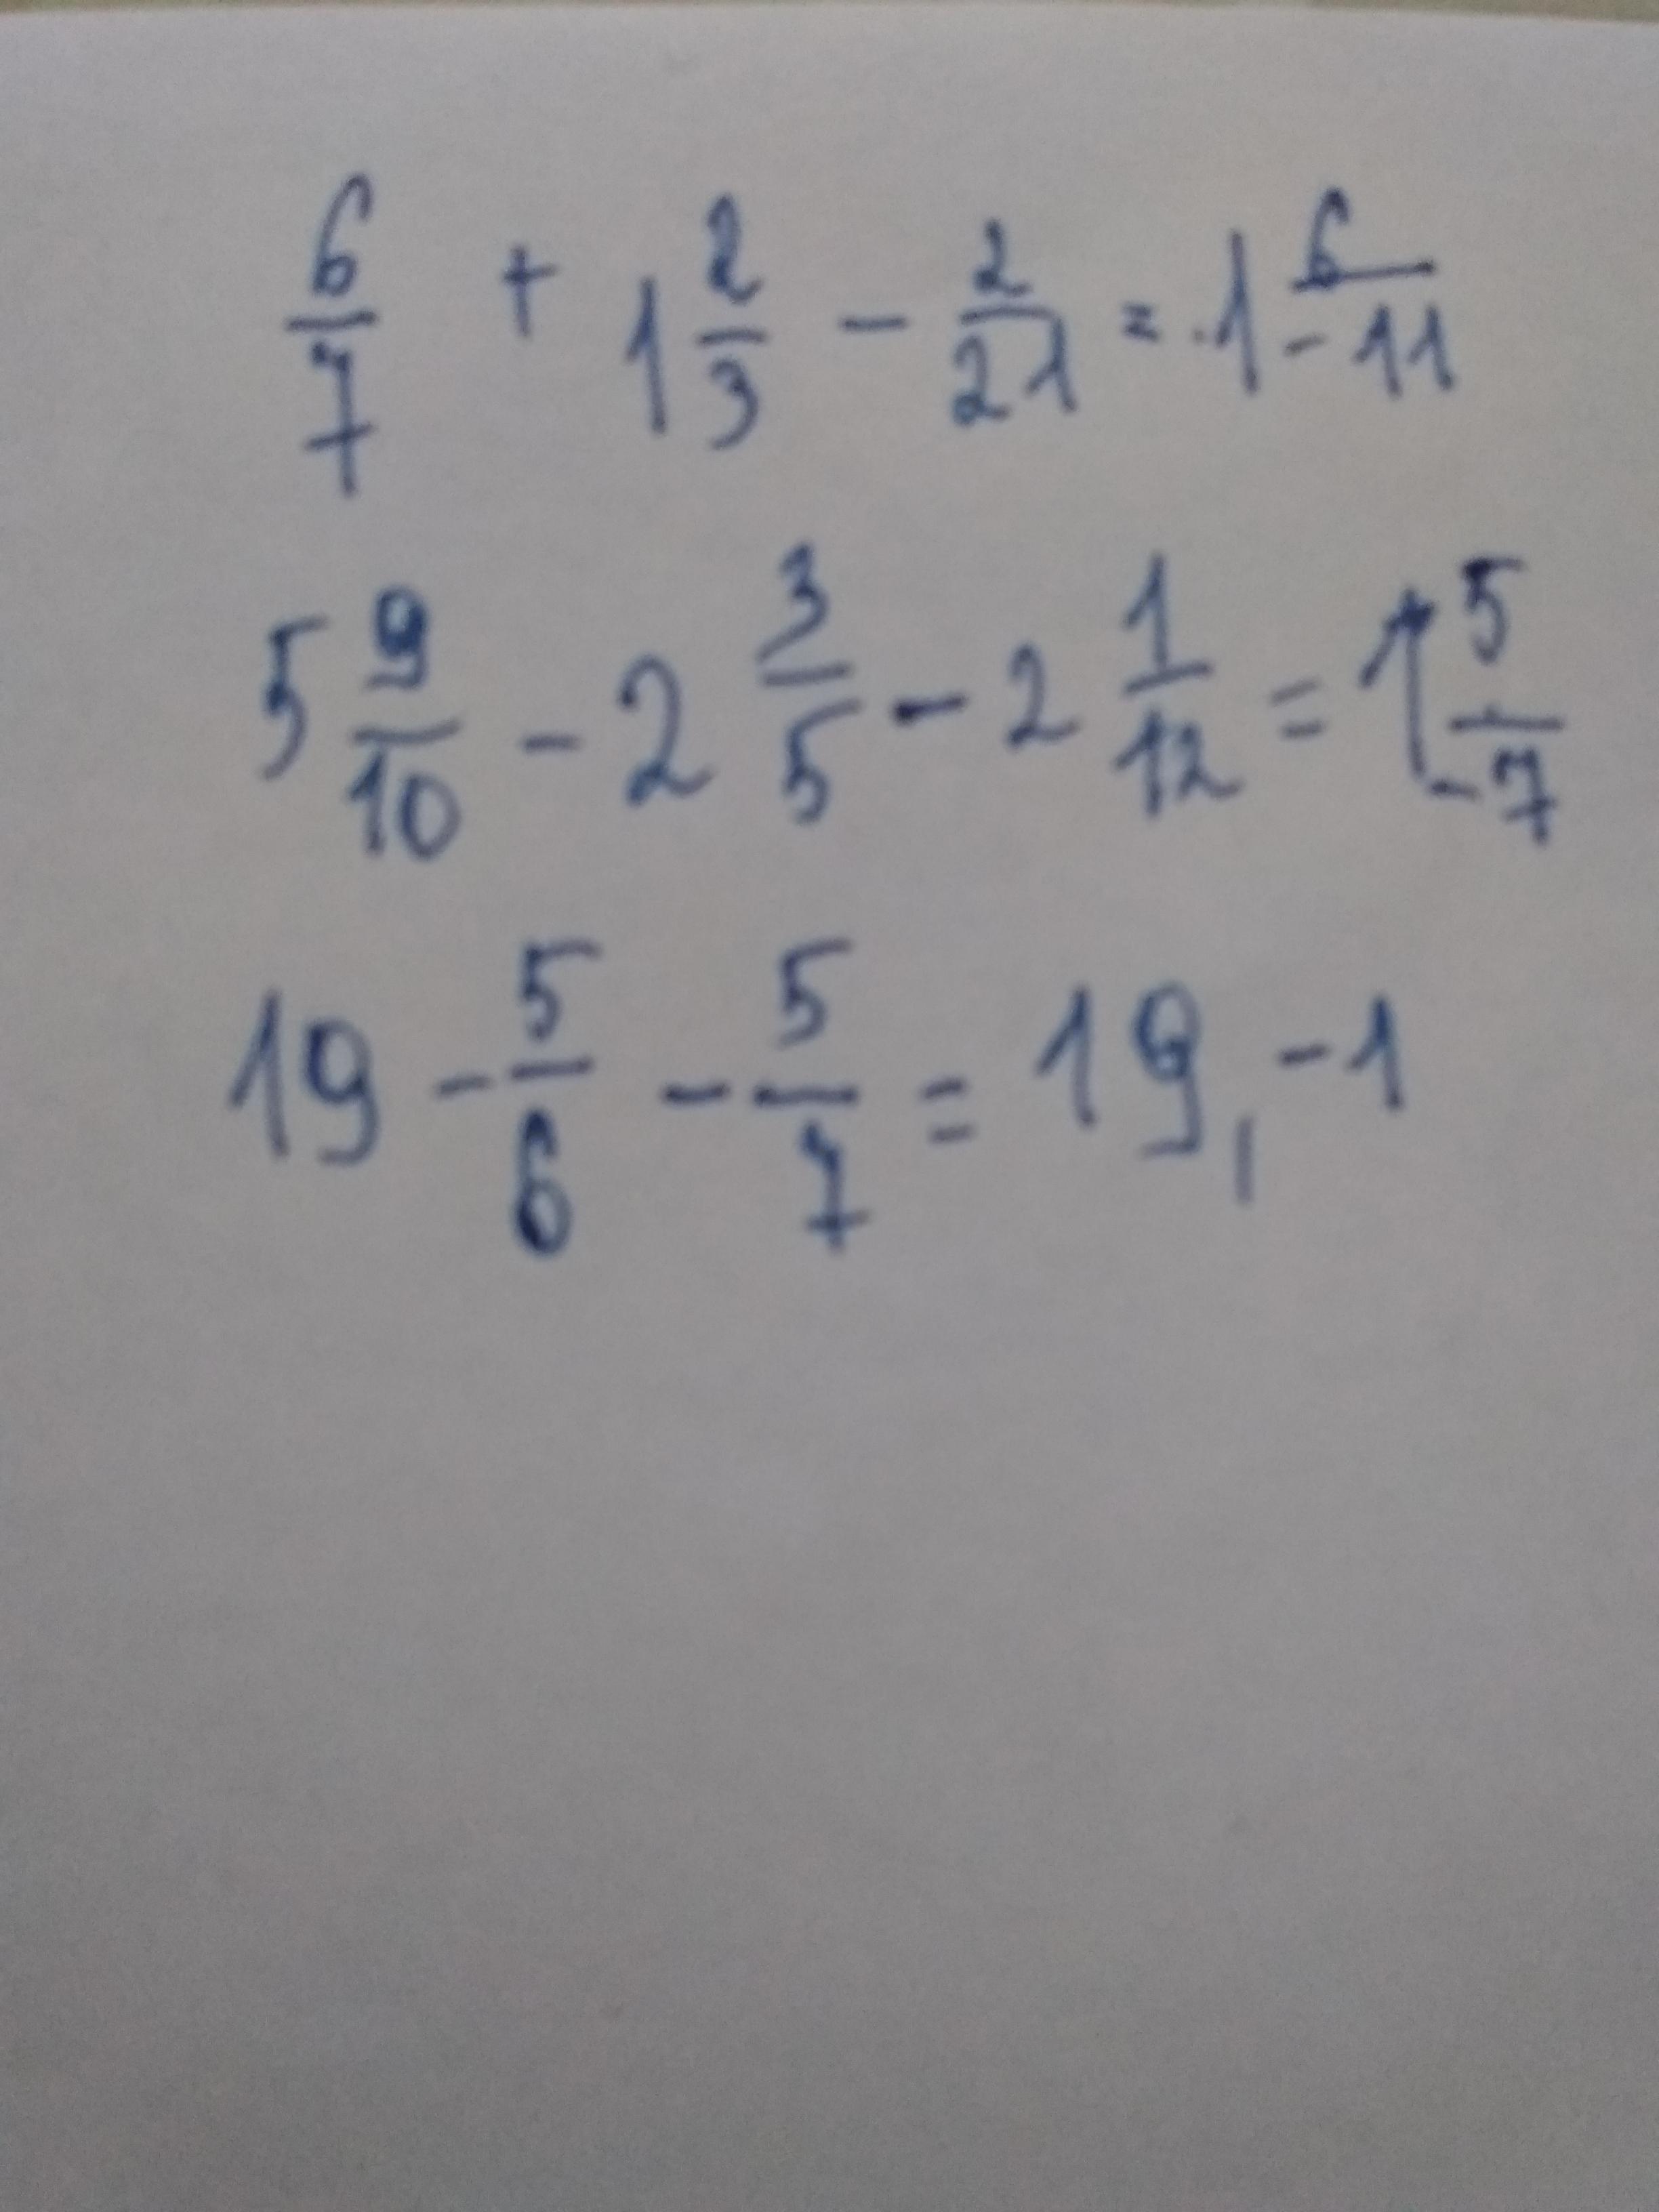 6/7 + 1 2/3 - 2/21 = 1 6/-11
5 9/10 - 2 3/5 - 2 1/12 = 1 5/-7
19 - 5/6 - 5/7 = 19, -1